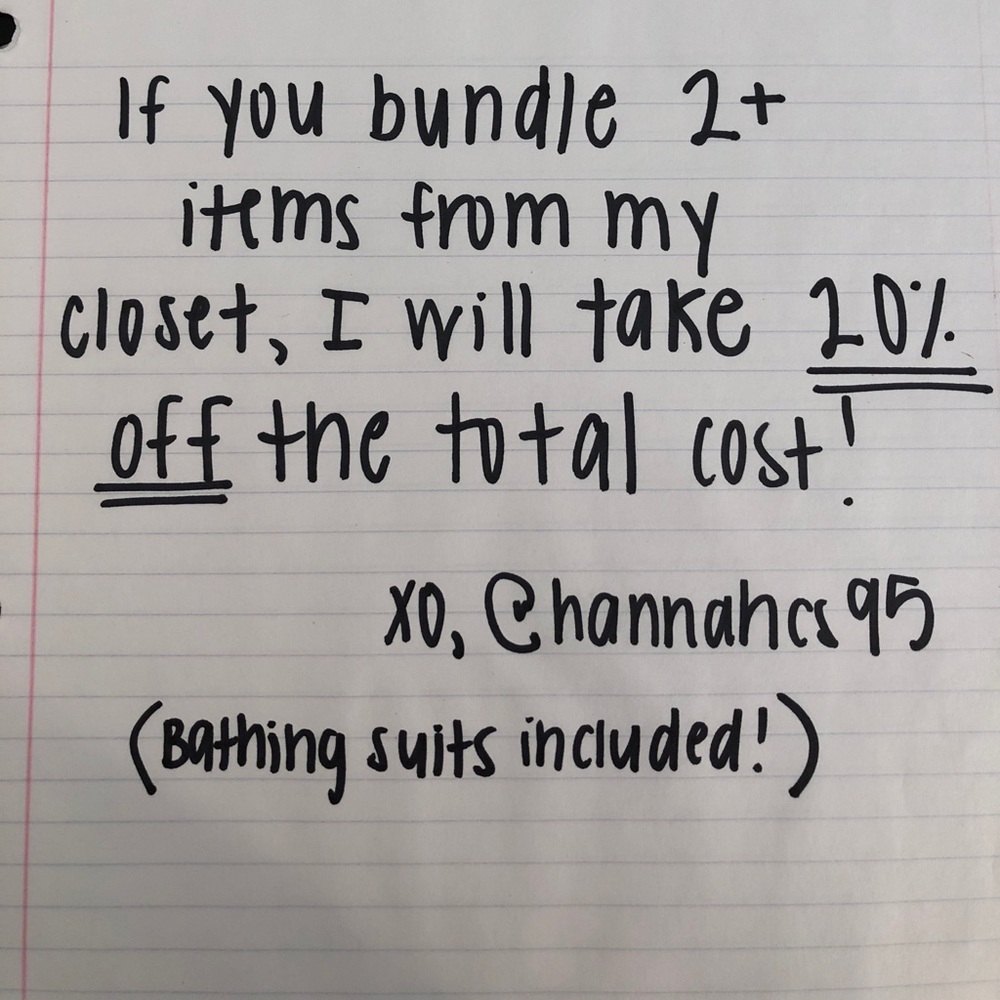 If you bundle 2+
items from my
closet, I will take 20%
off the total cost!
XO, @hannahcs95
(Bathing suits included!)